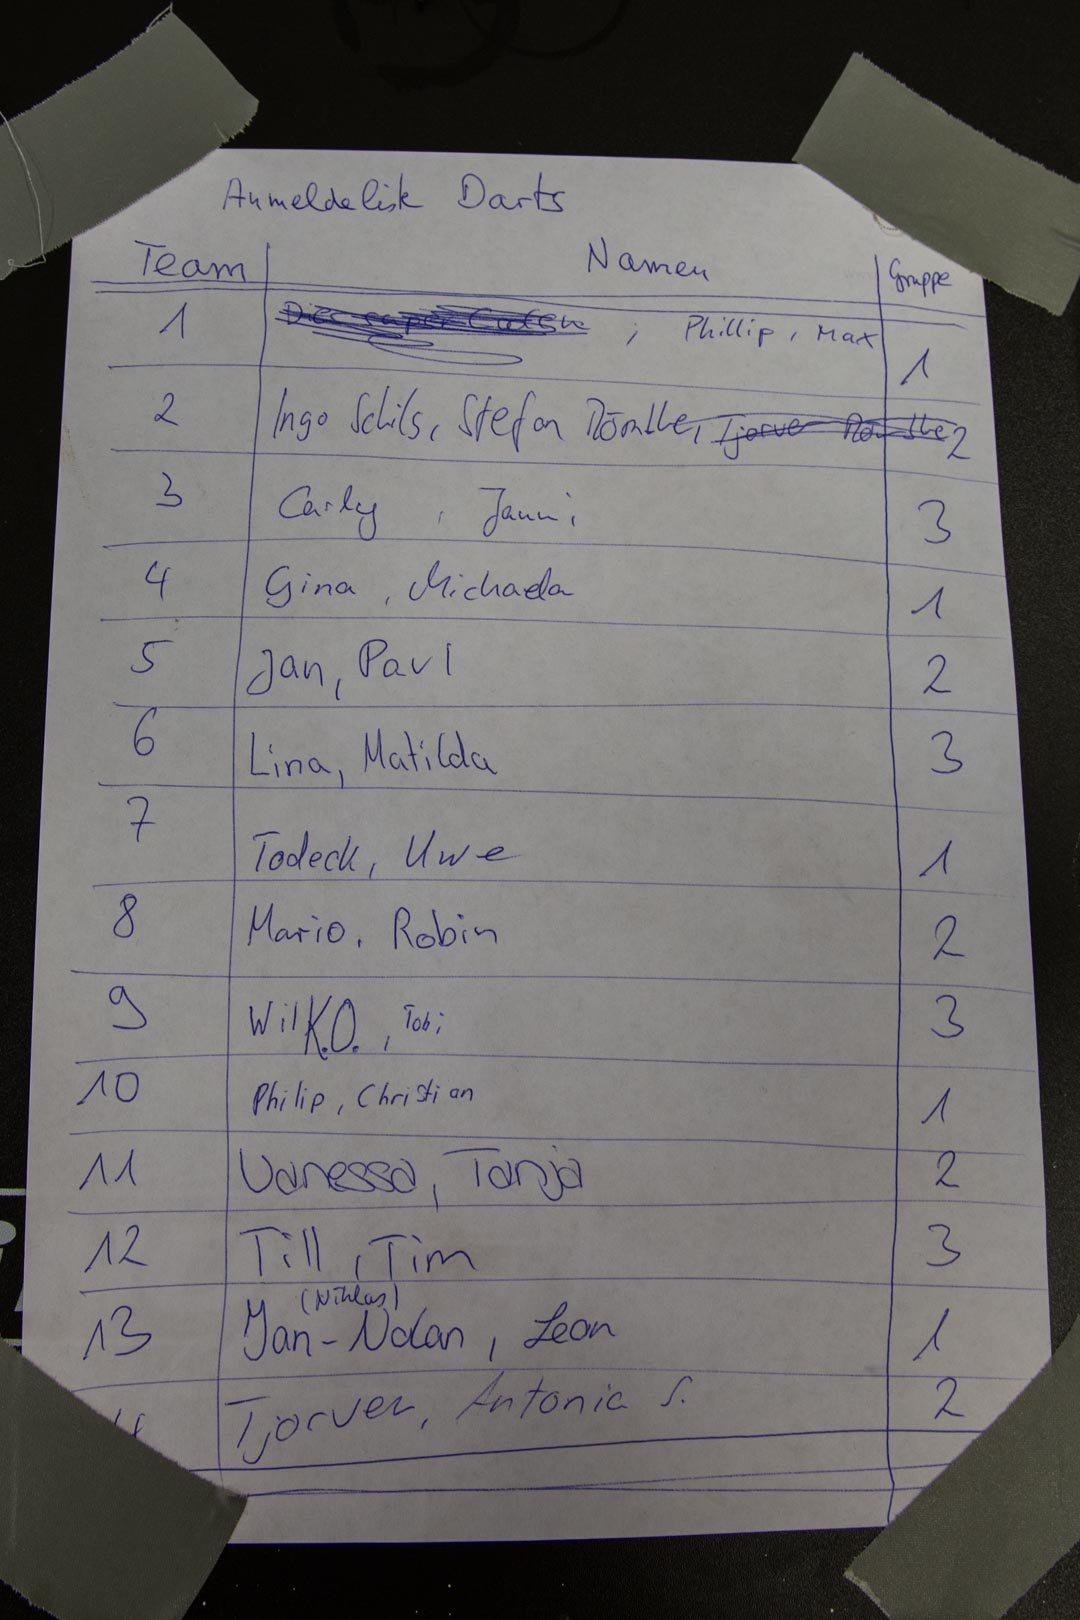 Anmeldeliste Darts
Team Namen Gruppe
1 ; Phillip, Max 1
2 Ingo Schils, Stefan 2
3 Carly, Janni 3
4 Gina, Michaela 1
5 Jan, Paul 2
6 Lina, Matilda 3
7 Todeck, Uwe 1
8 Mario, Robin 2
9 WilK.O., Tobi 3
10 Philip, Christian 1
11 Vanessa, Tanja 2
12 Till, Tim 3
(Niklas)
13 Jan-Nolan, Leon 1
Tjorven, Antonia S. 2